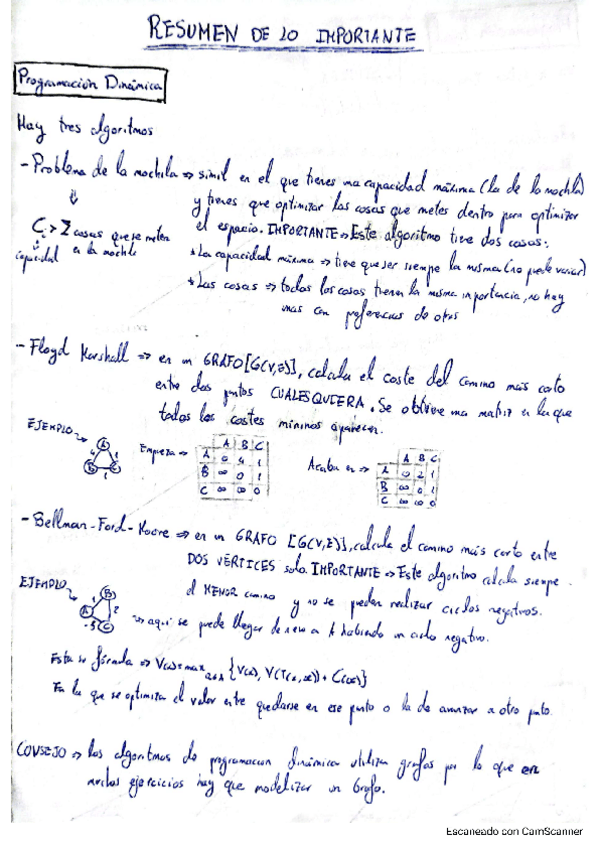 RESUMEN DE LO IMPORTANTE
Programación Dinámica
Hay tres algoritmos
- Problema de la mochila => simil en el que tienes una capacidad máxima (la de la mochila)
y tienes que optimizar las cosas que metes dentro para optimizar
el espacio. IMPORTANTE => Este algoritmo tiene dos cosas:
C > Σ cosas que se meten
capacidad en la mochila
* La capacidad máxima => tiene que ser siempre la misma (no puede variar)
* Las cosas => todas las cosas tienen la misma importancia, no hay
unas con preferencias de otras
- Floyd Warshall => en un GRAFO [G(V,E)], calcula el coste del camino más corto
entre dos puntos CUALESQUIERA. Se obtiene una matriz en la que
todos los costes mínimos aparecen.
EJEMPLO
A
4 1
B C
1
Empieza =>
A B C
A 0 4 1
B ∞ 0 1
C ∞ ∞ 0
Acaba en =>
A B C
A 0 2 1
B ∞ 0 1
C ∞ ∞ 0
- Bellman-Ford-Moore => en un GRAFO [G(V,E)], calcula el camino más corto entre
DOS VÉRTICES solo. IMPORTANTE => Este algoritmo calcula siempre
el MENOR camino y no se pueden realizar ciclos negativos.
EJEMPLO
B
1 2
A
-5 C
=> aquí se puede llegar de nuevo a A habiendo un ciclo negativo.
Esta es fórmula => V(x) = max {V(x), V(T(x,a)) + C(x)}
En la que se optimiza el valor entre quedarse en ese punto o la de avanzar a otro punto.
CONSEJO => los algoritmos de programacion dinámica utilizan grafos por lo que en
muchos ejercicios hay que modelizar un Grafo.
Escaneado con CamScanner